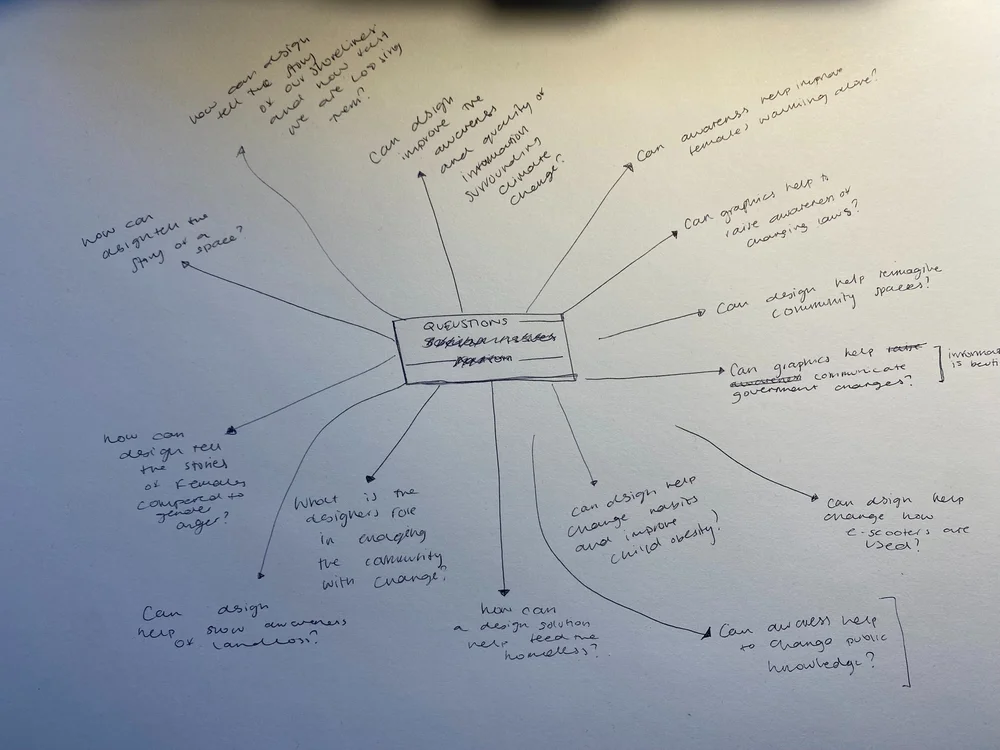 how can design
tell the story
of our shorelines
and how vast
we are loosing
them?
Can design
improve the
awareness
and quality of
information
surrounding
climate
change?
Can awareness help improve
females walking alone?
Can graphics help to
raise awareness of
changing laws?
how can
design tell the
story of a
space?
QUEUSTIONS
Can design help reimagine
community spaces?
Can graphics help raise
awareness communicate
government changes?
is
how can
design tell
the stories
of Females
compared to
gender
anger?
What is the
designers role
in engaging
the community
with change?
can design help
change habits
and improve
child obesity?
Can design help
change how
e-scooters are
used?
Can design
help show awareness
of landloss?
how can
a design solution
help feed the
homeless?
Can awarness help
to change public
knowledge?